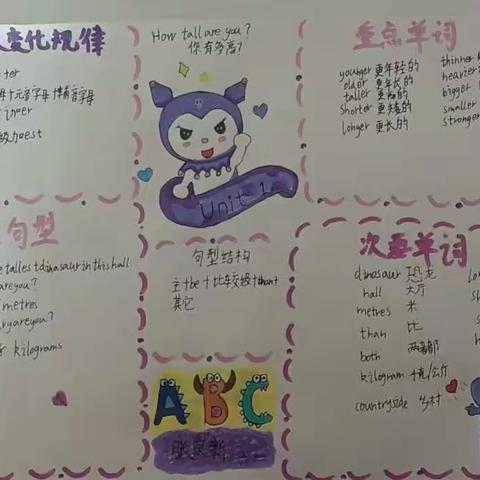 变化规律
How tall are you?
你有多高?
Unit 1
重点单词
younger 更年轻的
older 更年长的
taller 更高的
shorter 更矮的
longer 更长的
thinner
heavier
bigger
smaller
stronger
句型
tallest dinosaur in this hall
are you?
metres
are you?
kilograms
句型结构
主+be+比较级+than+
其它
ABC
次要单词
dinosaur 恐龙
hall 大厅
metres 米
than 比
both 两者都
kilogram 千克/公斤
countryside 乡村